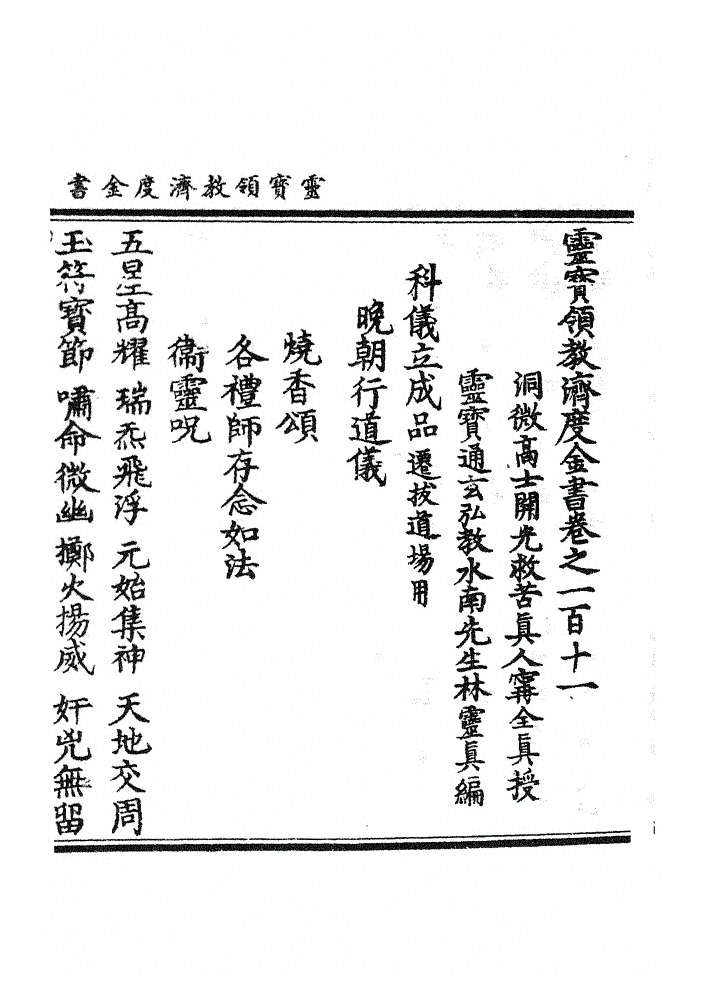 靈寶領教濟度金書
靈寶領教濟度金書卷之一百十一
洞微高士開光救苦眞人寗全眞授
靈寶通玄弘教水南先生林靈眞編
科儀立成品 遷拔道場用
晚朝行道儀
燒香頌
各禮師存念如法
衞靈呪
五星高耀 瑞炁飛浮 元始集神 天地交周
玉符寶節 嘯命微幽 擲火揚威 奸兇無留